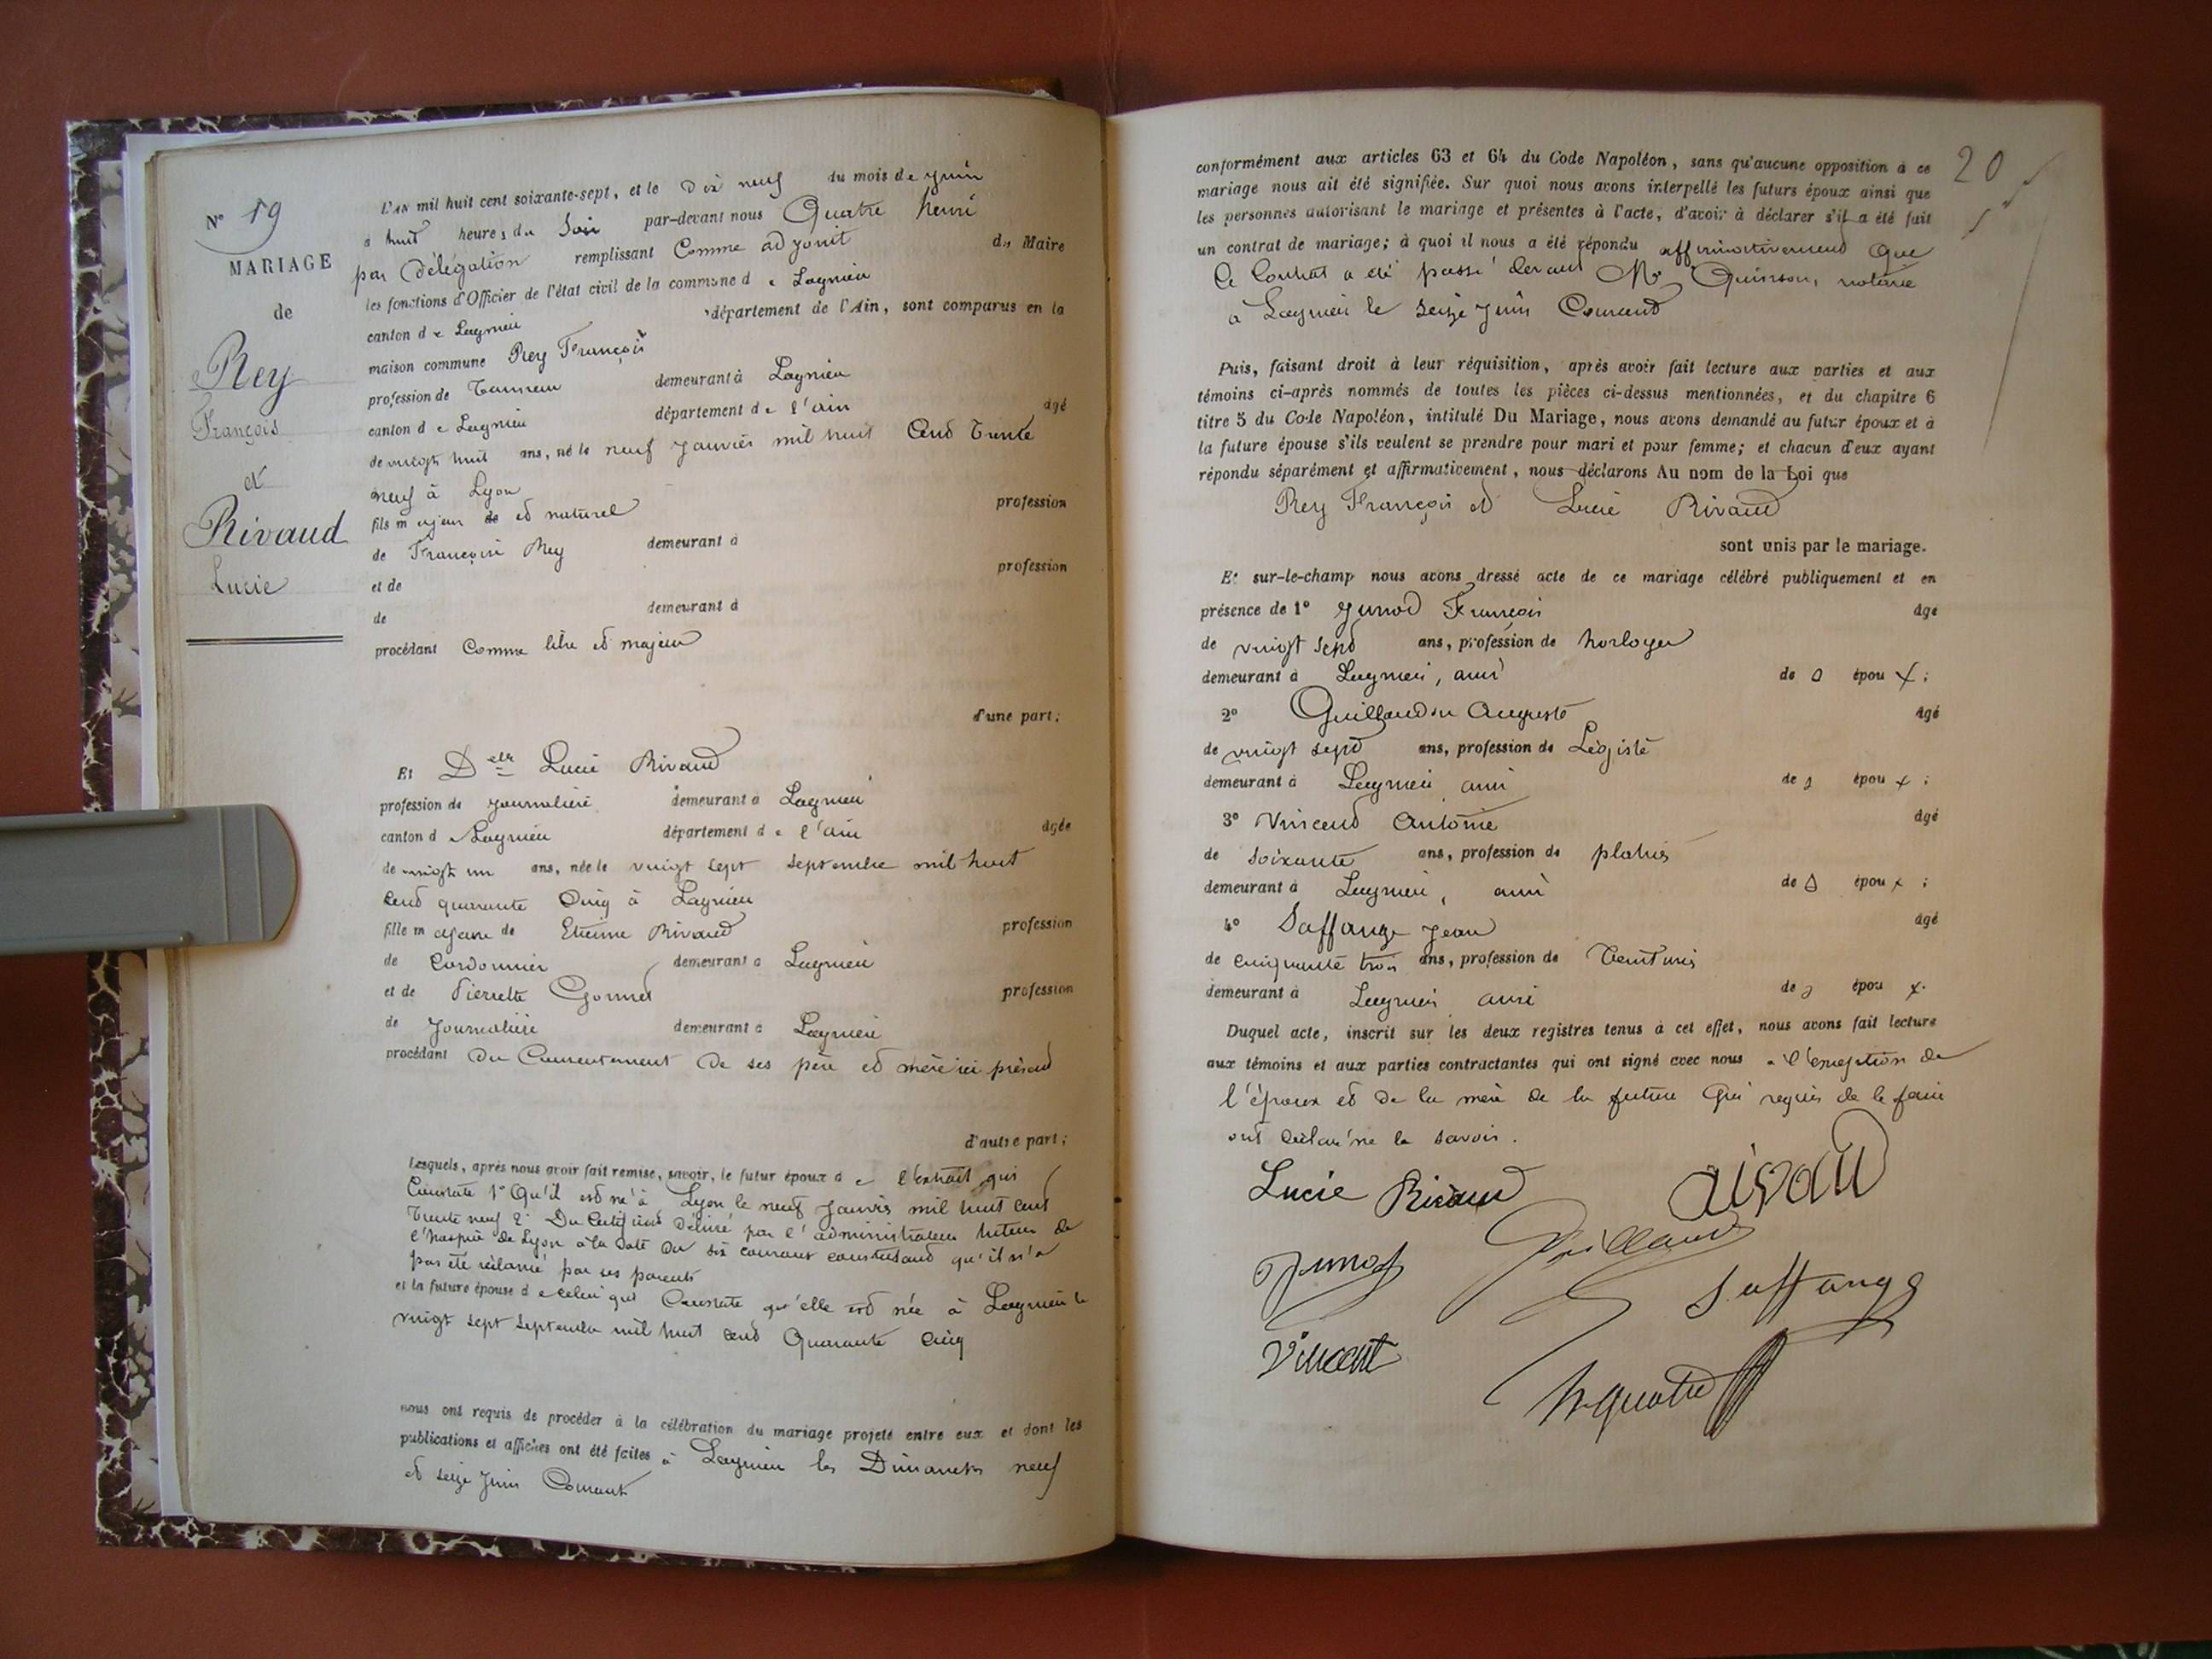 N° 19
MARIAGE
de
Rey
François
et
Rivaud
Lucie
L'AN mil huit cent soixante-sept, et le Dix neuf du mois de juin
à huit heures du Soir par-devant nous Quatre henri
par Délégation remplissant Comme adjoint du Maire
les fonctions d'Officier de l'état civil de la commune de Lagnieu
canton de Lagnieu département de l'Ain, sont comparus en la
maison commune Rey François
profession de Tanneur demeurant à Lagnieu
canton de Lagnieu département de l'ain âgé
de vingt huit ans, né le neuf janvier mil huit Cent Trente
neuf à Lyon
fils majeur de et naturel profession
de Françoise Rey demeurant à
et de profession
de demeurant à
procédant Comme libre et majeur
d'une part;
Et Delle Lucie Rivaud
profession de journalière demeurant à Lagnieu
canton de Lagnieu département de l'ain âgée
de vingt un ans, née le vingt sept septembre mil huit
Cent quarante Cinq à Lagnieu
fille majeure de Etienne Rivaud profession
de Cordonnier demeurant à Lagnieu
et de Pierrette Gonnet profession
de Journalière demeurant à Lagnieu
procédant du Consentement de ses père et mère ici présent
d'autre part;
Lesquels, après nous avoir fait remise, savoir, le futur époux de l'extrait qui
Constate 1° Qu'il est né à Lyon le neuf janvier mil huit cent
Trente neuf 2° Du Certificat délivré par l'administrateur tuteur de
l'hospice de Lyon à la date du six courant constatant qu'il n'a
pas été réclamé par ses parents
et la future épouse de celui qui Constate qu'elle est née à Lagnieu le
vingt sept septembre mil huit cent Quarante cinq
nous ont requis de procéder à la célébration du mariage projeté entre eux et dont les
publications et affiches ont été faites à Lagnieu les Dimanches neuf
et seize juin Courant
20
conformément aux articles 63 et 64 du Code Napoléon, sans qu'aucune opposition à ce
mariage nous ait été signifiée. Sur quoi nous avons interpellé les futurs époux ainsi que
les personnes autorisant le mariage et présentes à l'acte, d'avoir à déclarer s'il a été fait
un contrat de mariage; à quoi il nous a été répondu affirmativement Que
Ce Contrat a été passé devant Me Quinson, notaire
à Lagnieu le seize juin Courant
Puis, faisant droit à leur réquisition, après avoir fait lecture aux parties et aux
témoins ci-après nommés de toutes les pièces ci-dessus mentionnées, et du chapitre 6
titre 5 du Code Napoléon, intitulé Du Mariage, nous avons demandé au futur époux et à
la future épouse s'ils veulent se prendre pour mari et pour femme; et chacun d'eux ayant
répondu séparément et affirmativement, nous déclarons Au nom de la Loi que
Rey François et Lucie Rivaud
sont unis par le mariage.
Et sur-le-champ nous avons dressé acte de ce mariage célébré publiquement et en
présence de 1° Junod François âgé
de vingt sept ans, profession de horloger
demeurant à Lagnieu, ami de époux;
2° Guillaudin Auguste âgé
de vingt sept ans, profession de Légiste
demeurant à Lagnieu ami de époux;
3° Vincent Antoine âgé
de soixante ans, profession de platrier
demeurant à Lagnieu, ami de époux;
4° Saffange Jean âgé
de cinquante trois ans, profession de Teinturier
demeurant à Lagnieu ami de époux.
Duquel acte, inscrit sur les deux registres tenus à cet effet, nous avons fait lecture
aux témoins et aux parties contractantes qui ont signé avec nous à l'exception de
l'époux et de la mère de la future Qui requis de le faire
ont déclaré ne le savoir.
Lucie Rivaud
Junod Guillaudin
Saffange
Vincent
h quatre